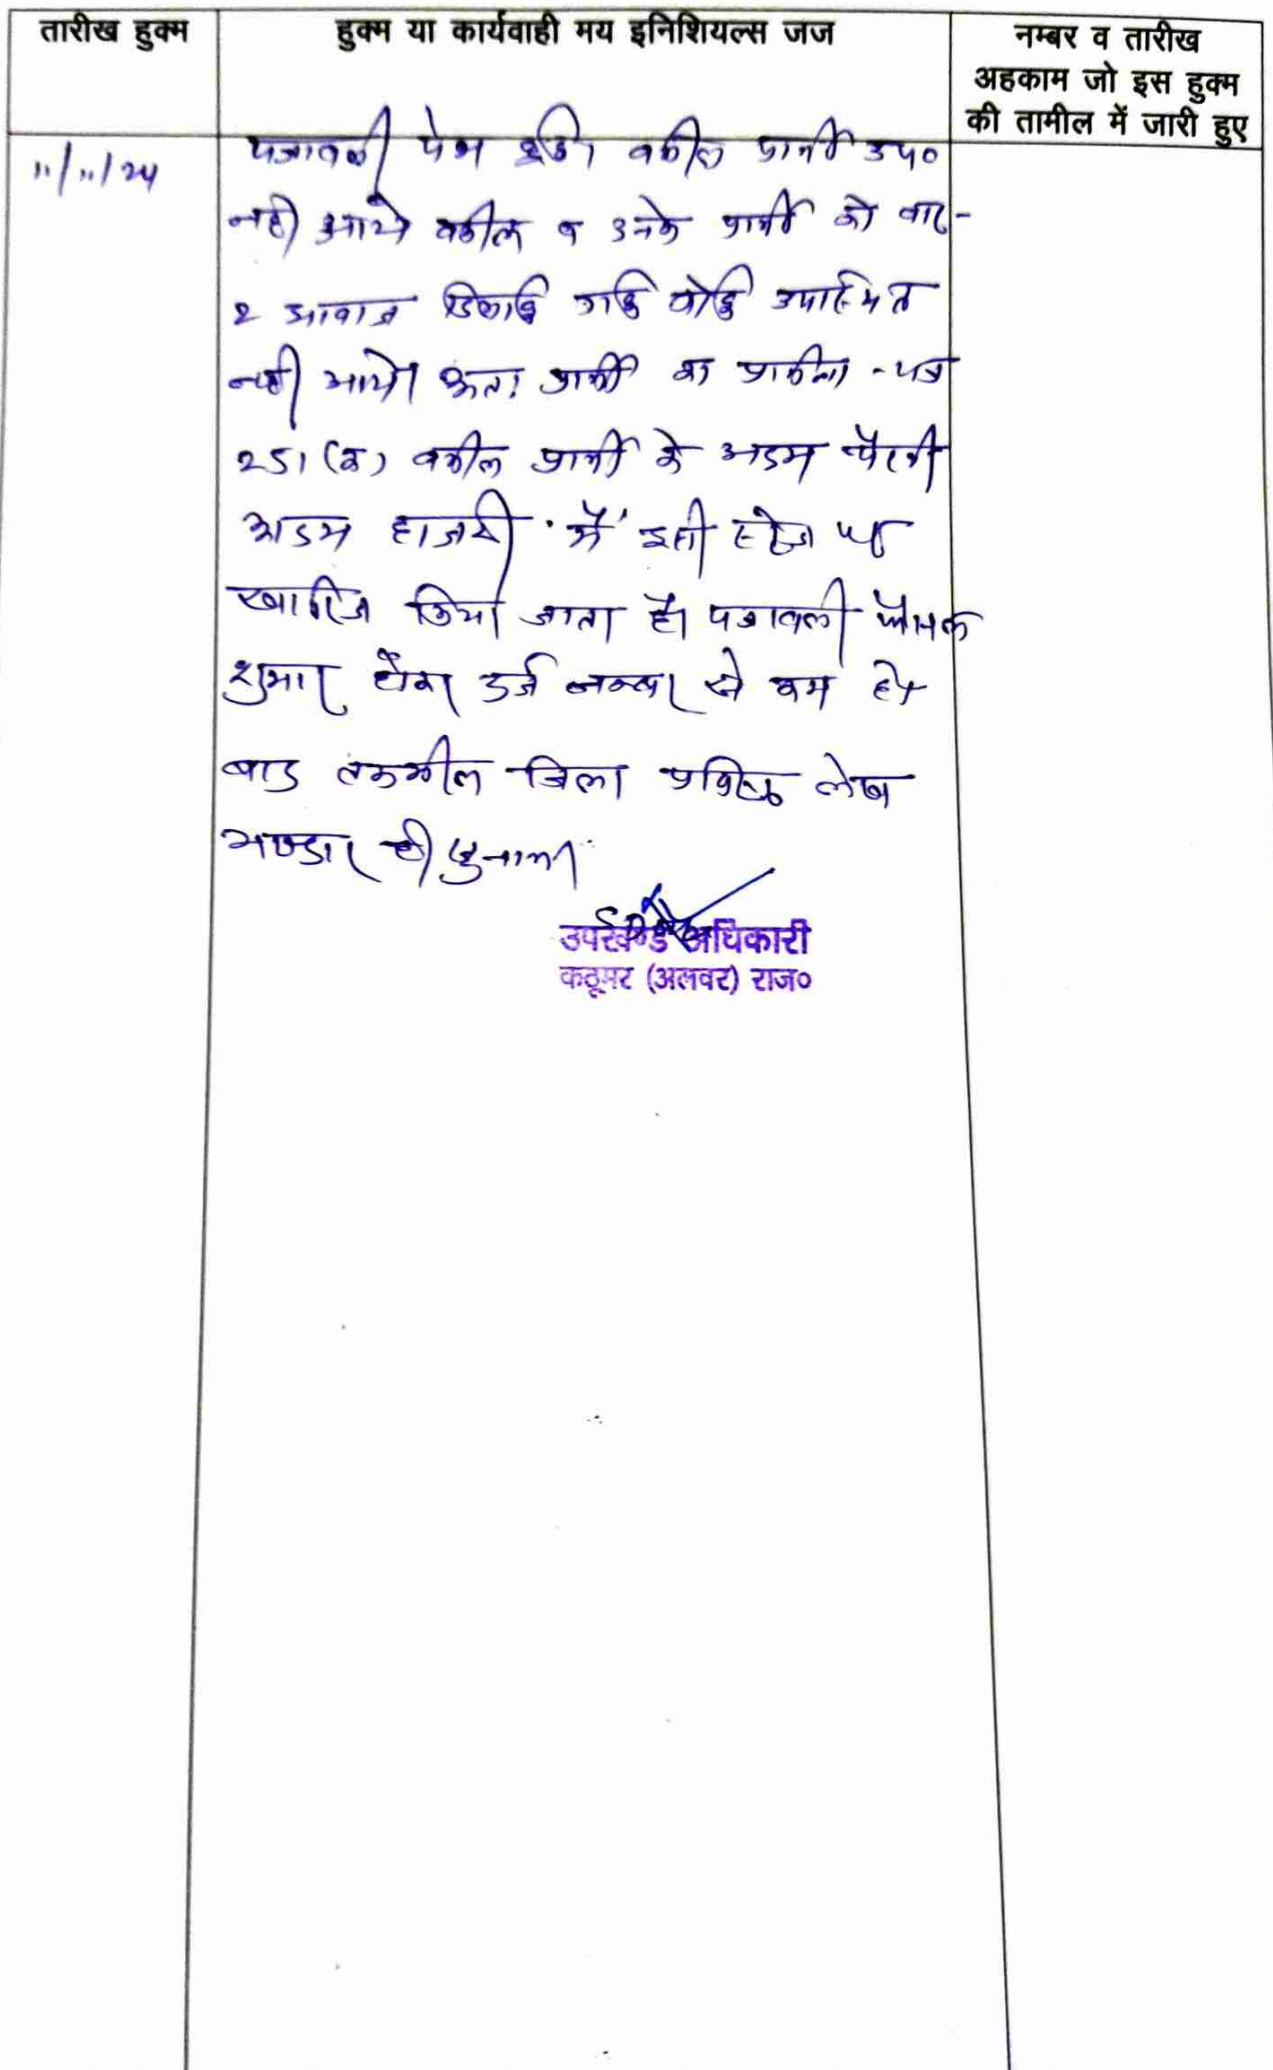 तारीख हुक्म
हुक्म या कार्यवाही मय इनिशियल्स जज
नम्बर व तारीख
अहकाम जो इस हुक्म
की तामील में जारी हुए
11/11/24
पत्रावली पेश हुई। वकील प्रार्थी उप०
नही आये वकील व उनके प्रार्थी को बार-
2 आवाज दिलाई गई कोई उपस्थित
नही आये। अतः प्रार्थी का प्रार्थना-पत्र
251 (क) वकील प्रार्थी के अदम पैरवी
अदम हाजरी में इसी स्टेज पर
खारिज किया जाता है। पत्रावली फैसल
शुमार होकर दर्ज नम्बर से कम हो
बाद तकमील जिला लेख
भण्डार हो
उपखण्ड अधिकारी
कठूमर (अलवर) राज०